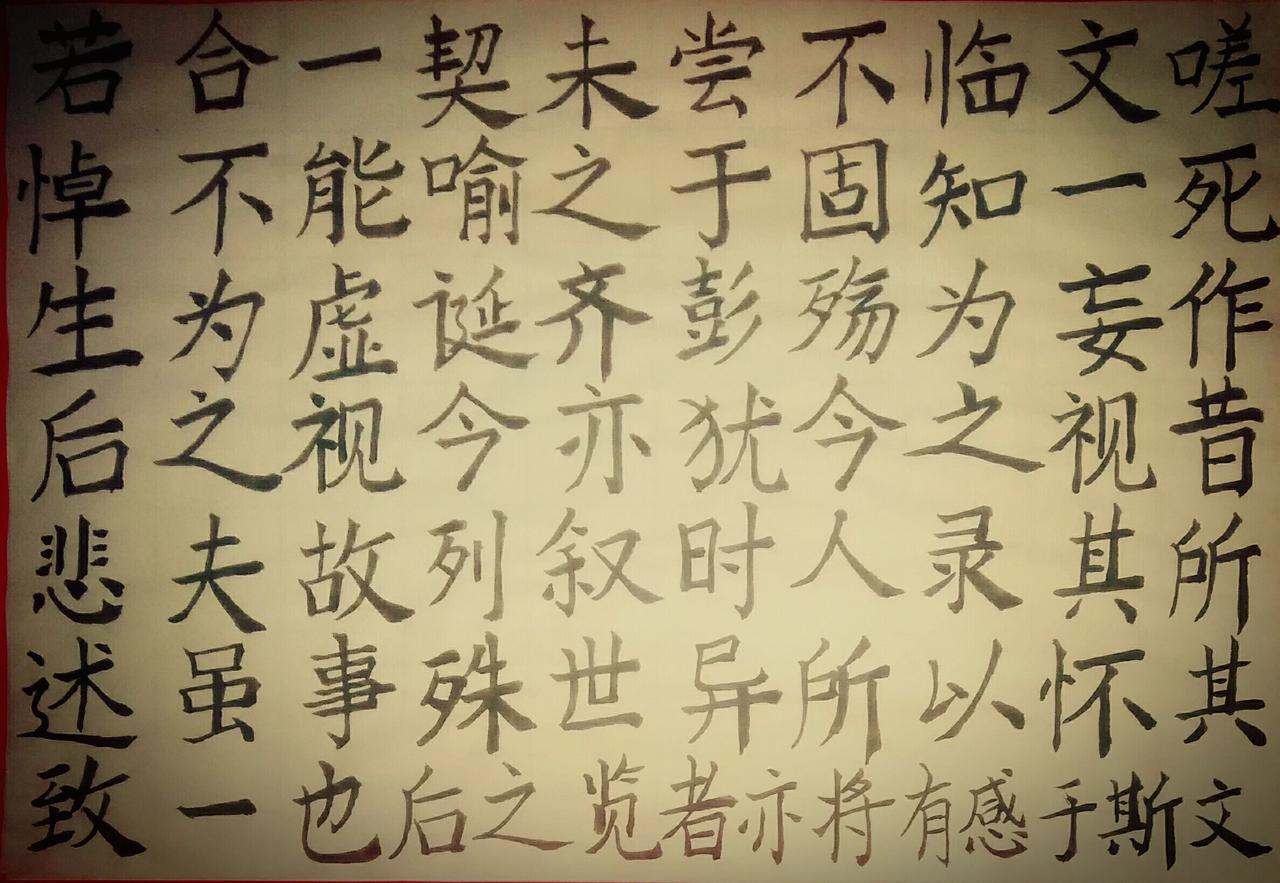 若合一契未尝不临文嗟
悼不能喻之于固知一死
生为虚诞齐彭殇为妄作
后之视今亦犹今之视昔
悲夫故列叙时人录其所
述虽事殊世异所以怀其
致一也后之览者亦将有感于斯文